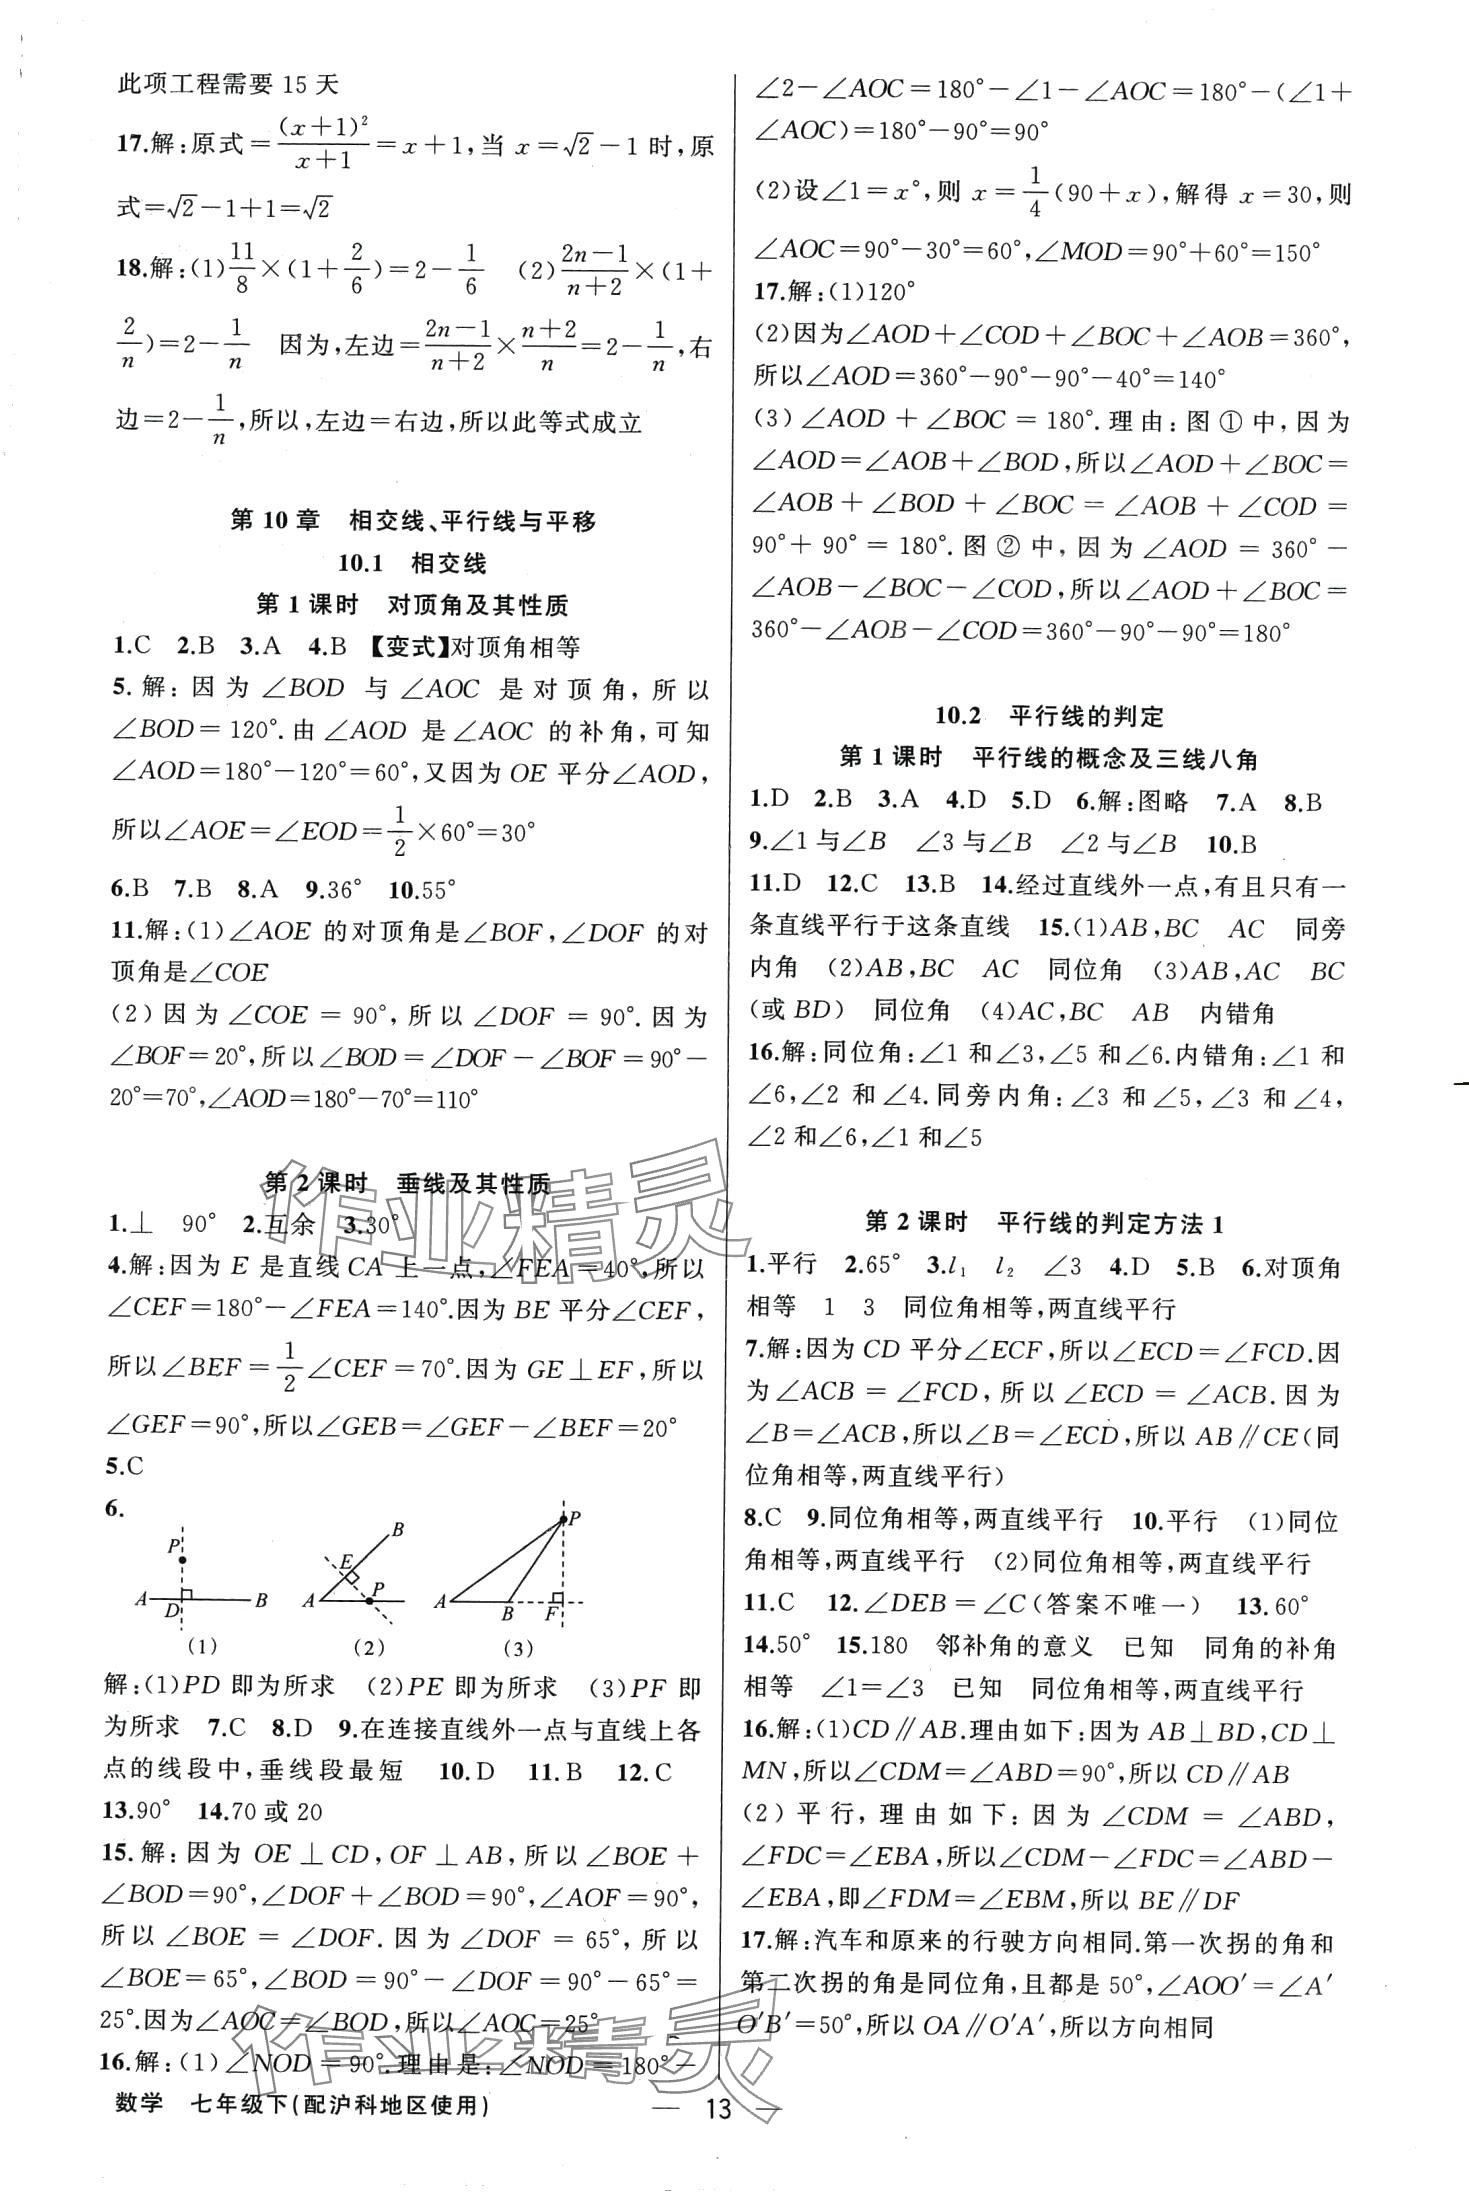 此项工程需要 15 天
17.解:原式=(x+1)²/(x+1)=x+1,当 x=√2-1 时,原
式=√2-1+1=√2
18.解:(1)11/8×(1+2/6)=2-1/6 (2)(2n-1)/(n+2)×(1+
2/n)=2-1/n 因为,左边=(2n-1)/(n+2)×(n+2)/n=2-1/n,右
边=2-1/n,所以,左边=右边,所以此等式成立
第 10 章 相交线、平行线与平移
10.1 相交线
第 1 课时 对顶角及其性质
1.C 2.B 3.A 4.B 【变式】对顶角相等
5.解:因为∠BOD 与∠AOC 是对顶角,所以
∠BOD=120°.由∠AOD 是∠AOC 的补角,可知
∠AOD=180°-120°=60°,又因为 OE 平分∠AOD,
所以∠AOE=∠EOD=1/2×60°=30°
6.B 7.B 8.A 9.36° 10.55°
11.解:(1)∠AOE 的对顶角是∠BOF,∠DOF 的对
顶角是∠COE
(2)因为∠COE=90°,所以∠DOF=90°.因为
∠BOF=20°,所以∠BOD=∠DOF-∠BOF=90°-
20°=70°,∠AOD=180°-70°=110°
第 2 课时 垂线及其性质
1.⊥ 90° 2.互余 3.30°
4.解:因为 E 是直线 CA 上一点,∠FEA=40°,所以
∠CEF=180°-∠FEA=140°.因为 BE 平分∠CEF,
所以∠BEF=1/2∠CEF=70°.因为 GE⊥EF,所以
∠GEF=90°,所以∠GEB=∠GEF-∠BEF=20°
5.C
6.
P A D B (1)
A E B P (2)
A B F P (3)
解:(1)PD 即为所求 (2)PE 即为所求 (3)PF 即
为所求 7.C 8.D 9.在连接直线外一点与直线上各
点的线段中,垂线段最短 10.D 11.B 12.C
13.90° 14.70 或 20
15.解:因为 OE⊥CD,OF⊥AB,所以∠BOE+
∠BOD=90°,∠DOF+∠BOD=90°,∠AOF=90°,
所以∠BOE=∠DOF.因为∠DOF=65°,所以
∠BOE=65°,∠BOD=90°-∠DOF=90°-65°=
25°.因为∠AOC=∠BOD,所以∠AOC=25°
16.解:(1)∠NOD=90°.理由是:∠NOD=180°-
∠2-∠AOC=180°-∠1-∠AOC=180°-(∠1+
∠AOC)=180°-90°=90°
(2)设∠1=x°,则 x=1/4(90+x),解得 x=30,则
∠AOC=90°-30°=60°,∠MOD=90°+60°=150°
17.解:(1)120°
(2)因为∠AOD+∠COD+∠BOC+∠AOB=360°,
所以∠AOD=360°-90°-90°-40°=140°
(3)∠AOD+∠BOC=180°.理由:图①中,因为
∠AOD=∠AOB+∠BOD,所以∠AOD+∠BOC=
∠AOB+∠BOD+∠BOC=∠AOB+∠COD=
90°+90°=180°.图②中,因为∠AOD=360°-
∠AOB-∠BOC-∠COD,所以∠AOD+∠BOC=
360°-∠AOB-∠COD=360°-90°-90°=180°
10.2 平行线的判定
第 1 课时 平行线的概念及三线八角
1.D 2.B 3.A 4.D 5.D 6.解:图略 7.A 8.B
9.∠1与∠B ∠3与∠B ∠2与∠B 10.B
11.D 12.C 13.B 14.经过直线外一点,有且只有一
条直线平行于这条直线 15.(1)AB,BC AC 同旁
内角 (2)AB,BC AC 同位角 (3)AB,AC BC
(或 BD) 同位角 (4)AC,BC AB 内错角
16.解:同位角:∠1 和∠3,∠5 和∠6.内错角:∠1 和
∠6,∠2 和∠4.同旁内角:∠3 和∠5,∠3 和∠4,
∠2 和∠6,∠1 和∠5
第 2 课时 平行线的判定方法 1
1.平行 2.65° 3.l₁ l₂ ∠3 4.D 5.B 6.对顶角
相等 1 3 同位角相等,两直线平行
7.解:因为 CD 平分∠ECF,所以∠ECD=∠FCD.因
为∠ACB=∠FCD,所以∠ECD=∠ACB.因为
∠B=∠ACB,所以∠B=∠ECD,所以 AB∥CE(同
位角相等,两直线平行)
8.C 9.同位角相等,两直线平行 10.平行 (1)同位
角相等,两直线平行 (2)同位角相等,两直线平行
11.C 12.∠DEB=∠C(答案不唯一) 13.60°
14.50° 15.180 邻补角的意义 已知 同角的补角
相等 ∠1=∠3 已知 同位角相等,两直线平行
16.解:(1)CD∥AB.理由如下:因为 AB⊥BD,CD⊥
MN,所以∠CDM=∠ABD=90°,所以 CD∥AB
(2)平行,理由如下:因为∠CDM=∠ABD,
∠FDC=∠EBA,所以∠CDM-∠FDC=∠ABD-
∠EBA,即∠FDM=∠EBM,所以 BE∥DF
17.解:汽车和原来的行驶方向相同.第一次拐的角和
第二次拐的角是同位角,且都是 50°,∠AOO′=∠A′
O′B′=50°,所以 OA∥O′A′,所以方向相同
数学 七年级下(配沪科地区使用)
— 13 —
作业精灵
作业精灵